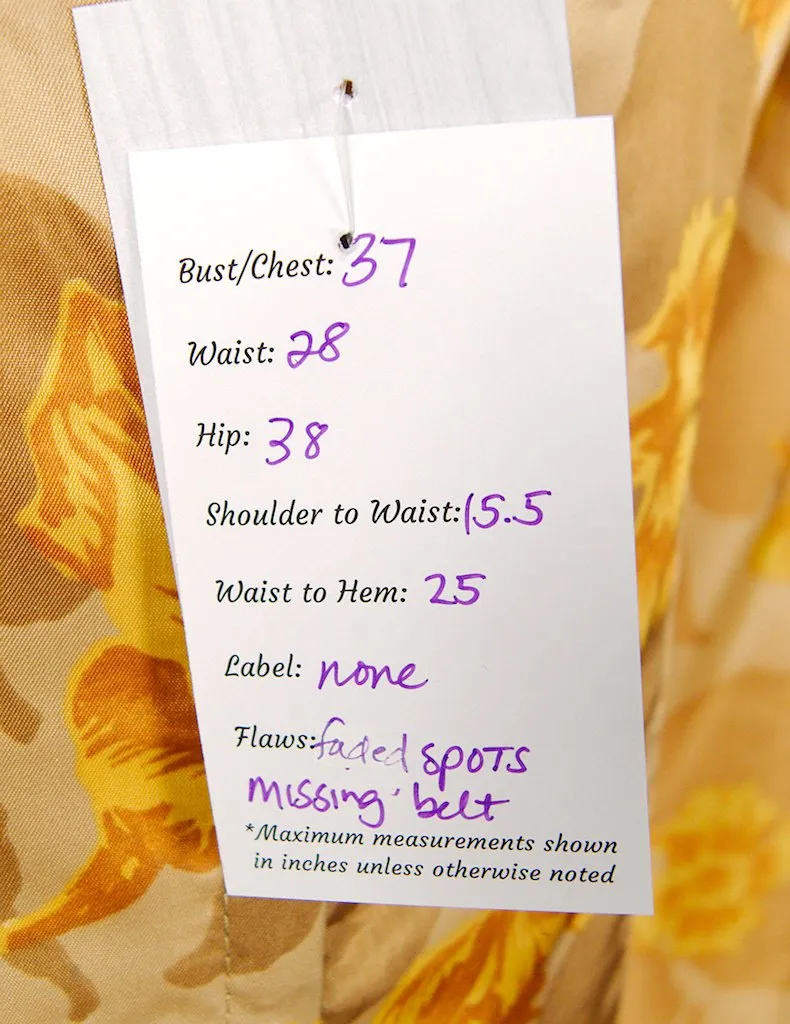 Bust/Chest: 37
Waist: 28
Hip: 38
Shoulder to Waist: 15.5
Waist to Hem: 25
Label: none
Flaws: faded spots
missing belt
*Maximum measurements shown
in inches unless otherwise noted